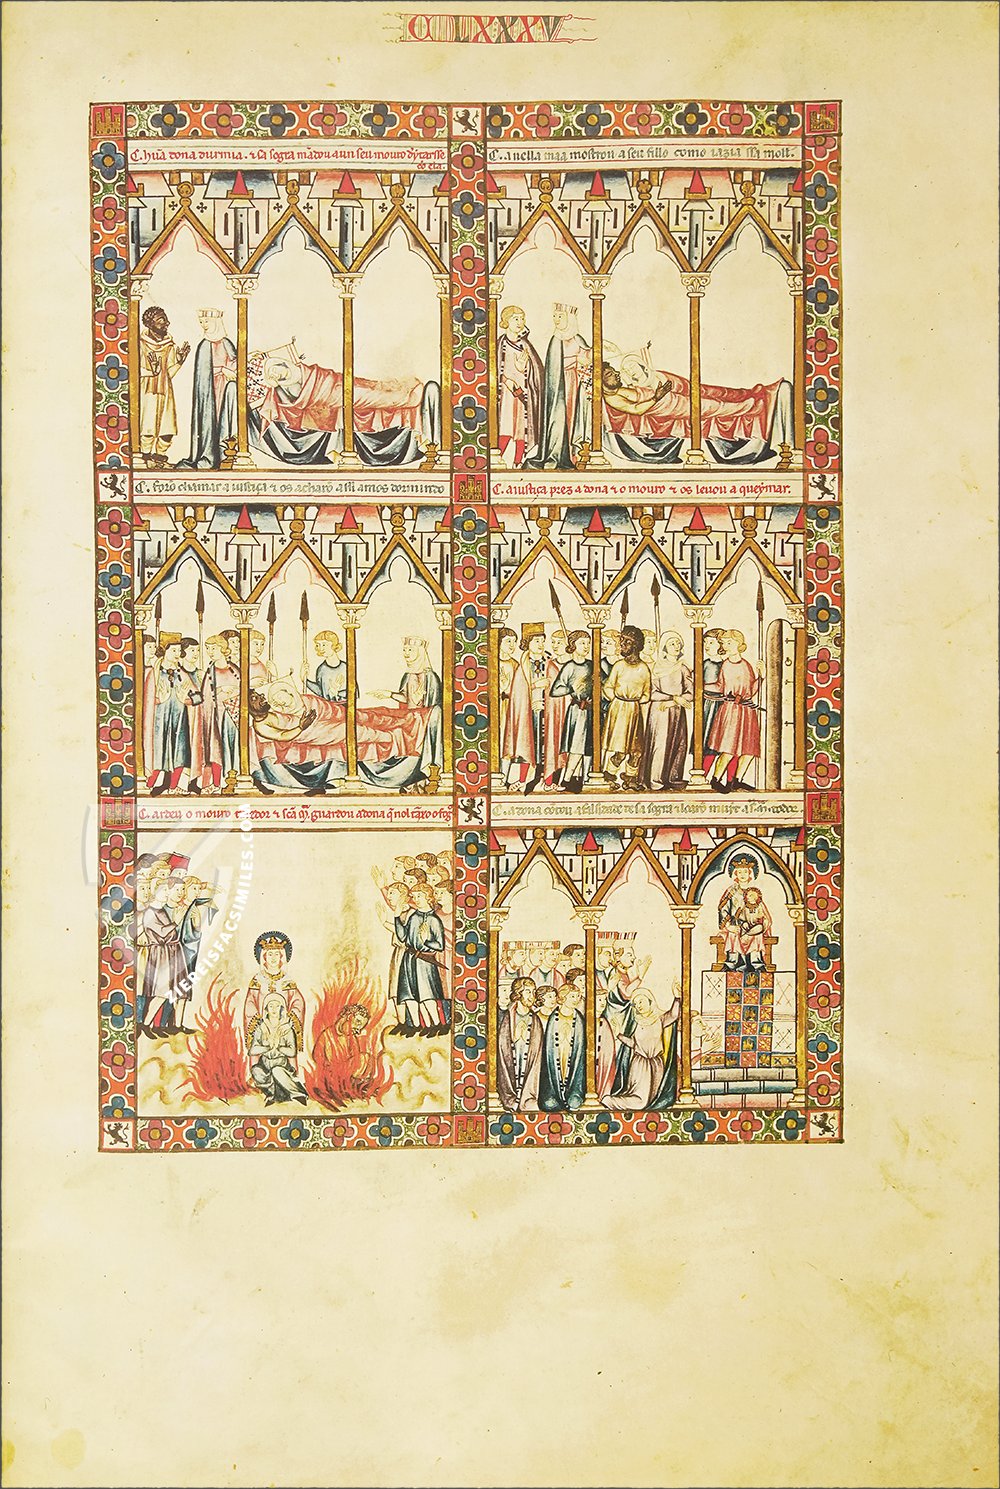 CLXXXV
C. hũa dona durmia. ⁊ sa sogra mãdou a un seu mouro deytarsse
cõ ela.
C. a uella maa mostrou a seu fillo como iazia ssa moll.
C. forõ chamar a iustiça ⁊ os acharõ assi amos dormindo
C. a iustiça prez a dona ⁊ o mouro ⁊ os leuou a queymar.
C. ardeu o mouro ⁊ guardou a dona q̃ nõ
C. a dona cõtou a falsidade de sa sogra ⁊
ZIEREISFACSIMILES.COM